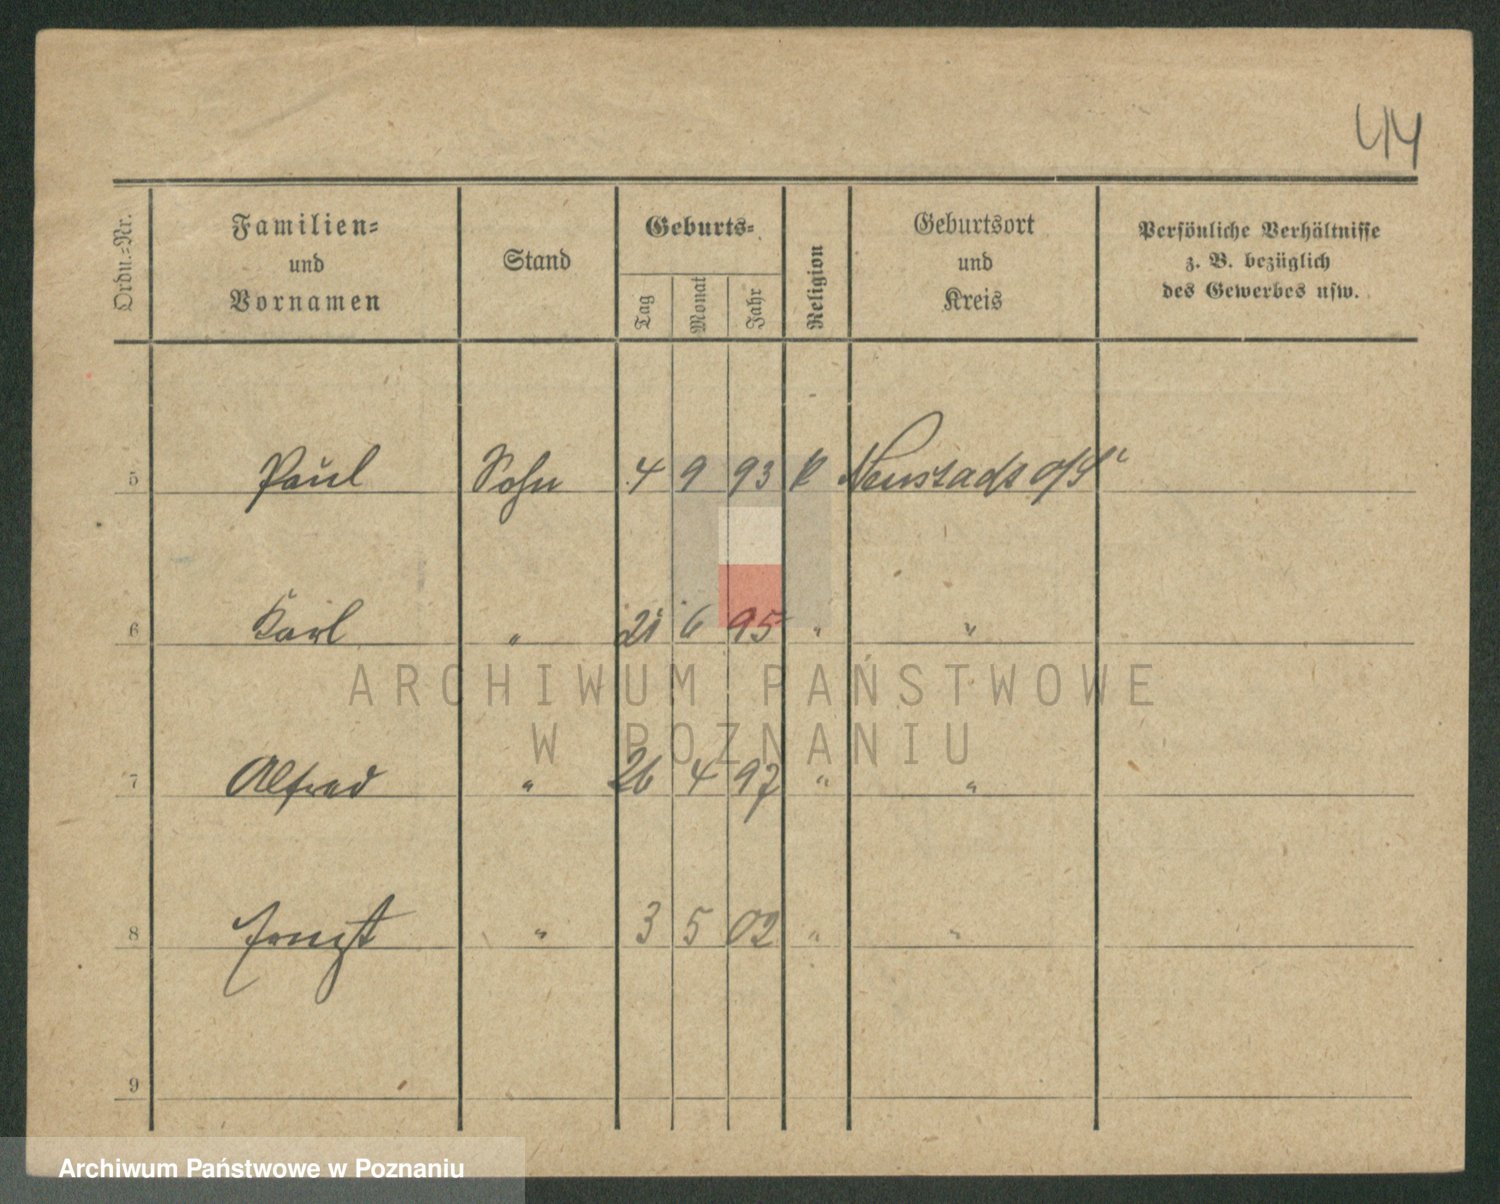 44
Ordn.-Nr.
Familien-
und
Vornamen
Stand
Geburts-
Tag
Monat
Jahr
Religion
Geburtsort
und
Kreis
Persönliche Verhältnisse
z. B. bezüglich
des Gewerbes usw.
5 Paul Sohn 4 9 93 K Neustadt o/S
6 Karl " 21 6 95 " "
7 Alfred " 26 4 97 " "
8 Ernst " 3 5 02 " "
9
ARCHIWUM PAŃSTWOWE
W POZNANIU
Archiwum Państwowe w Poznaniu